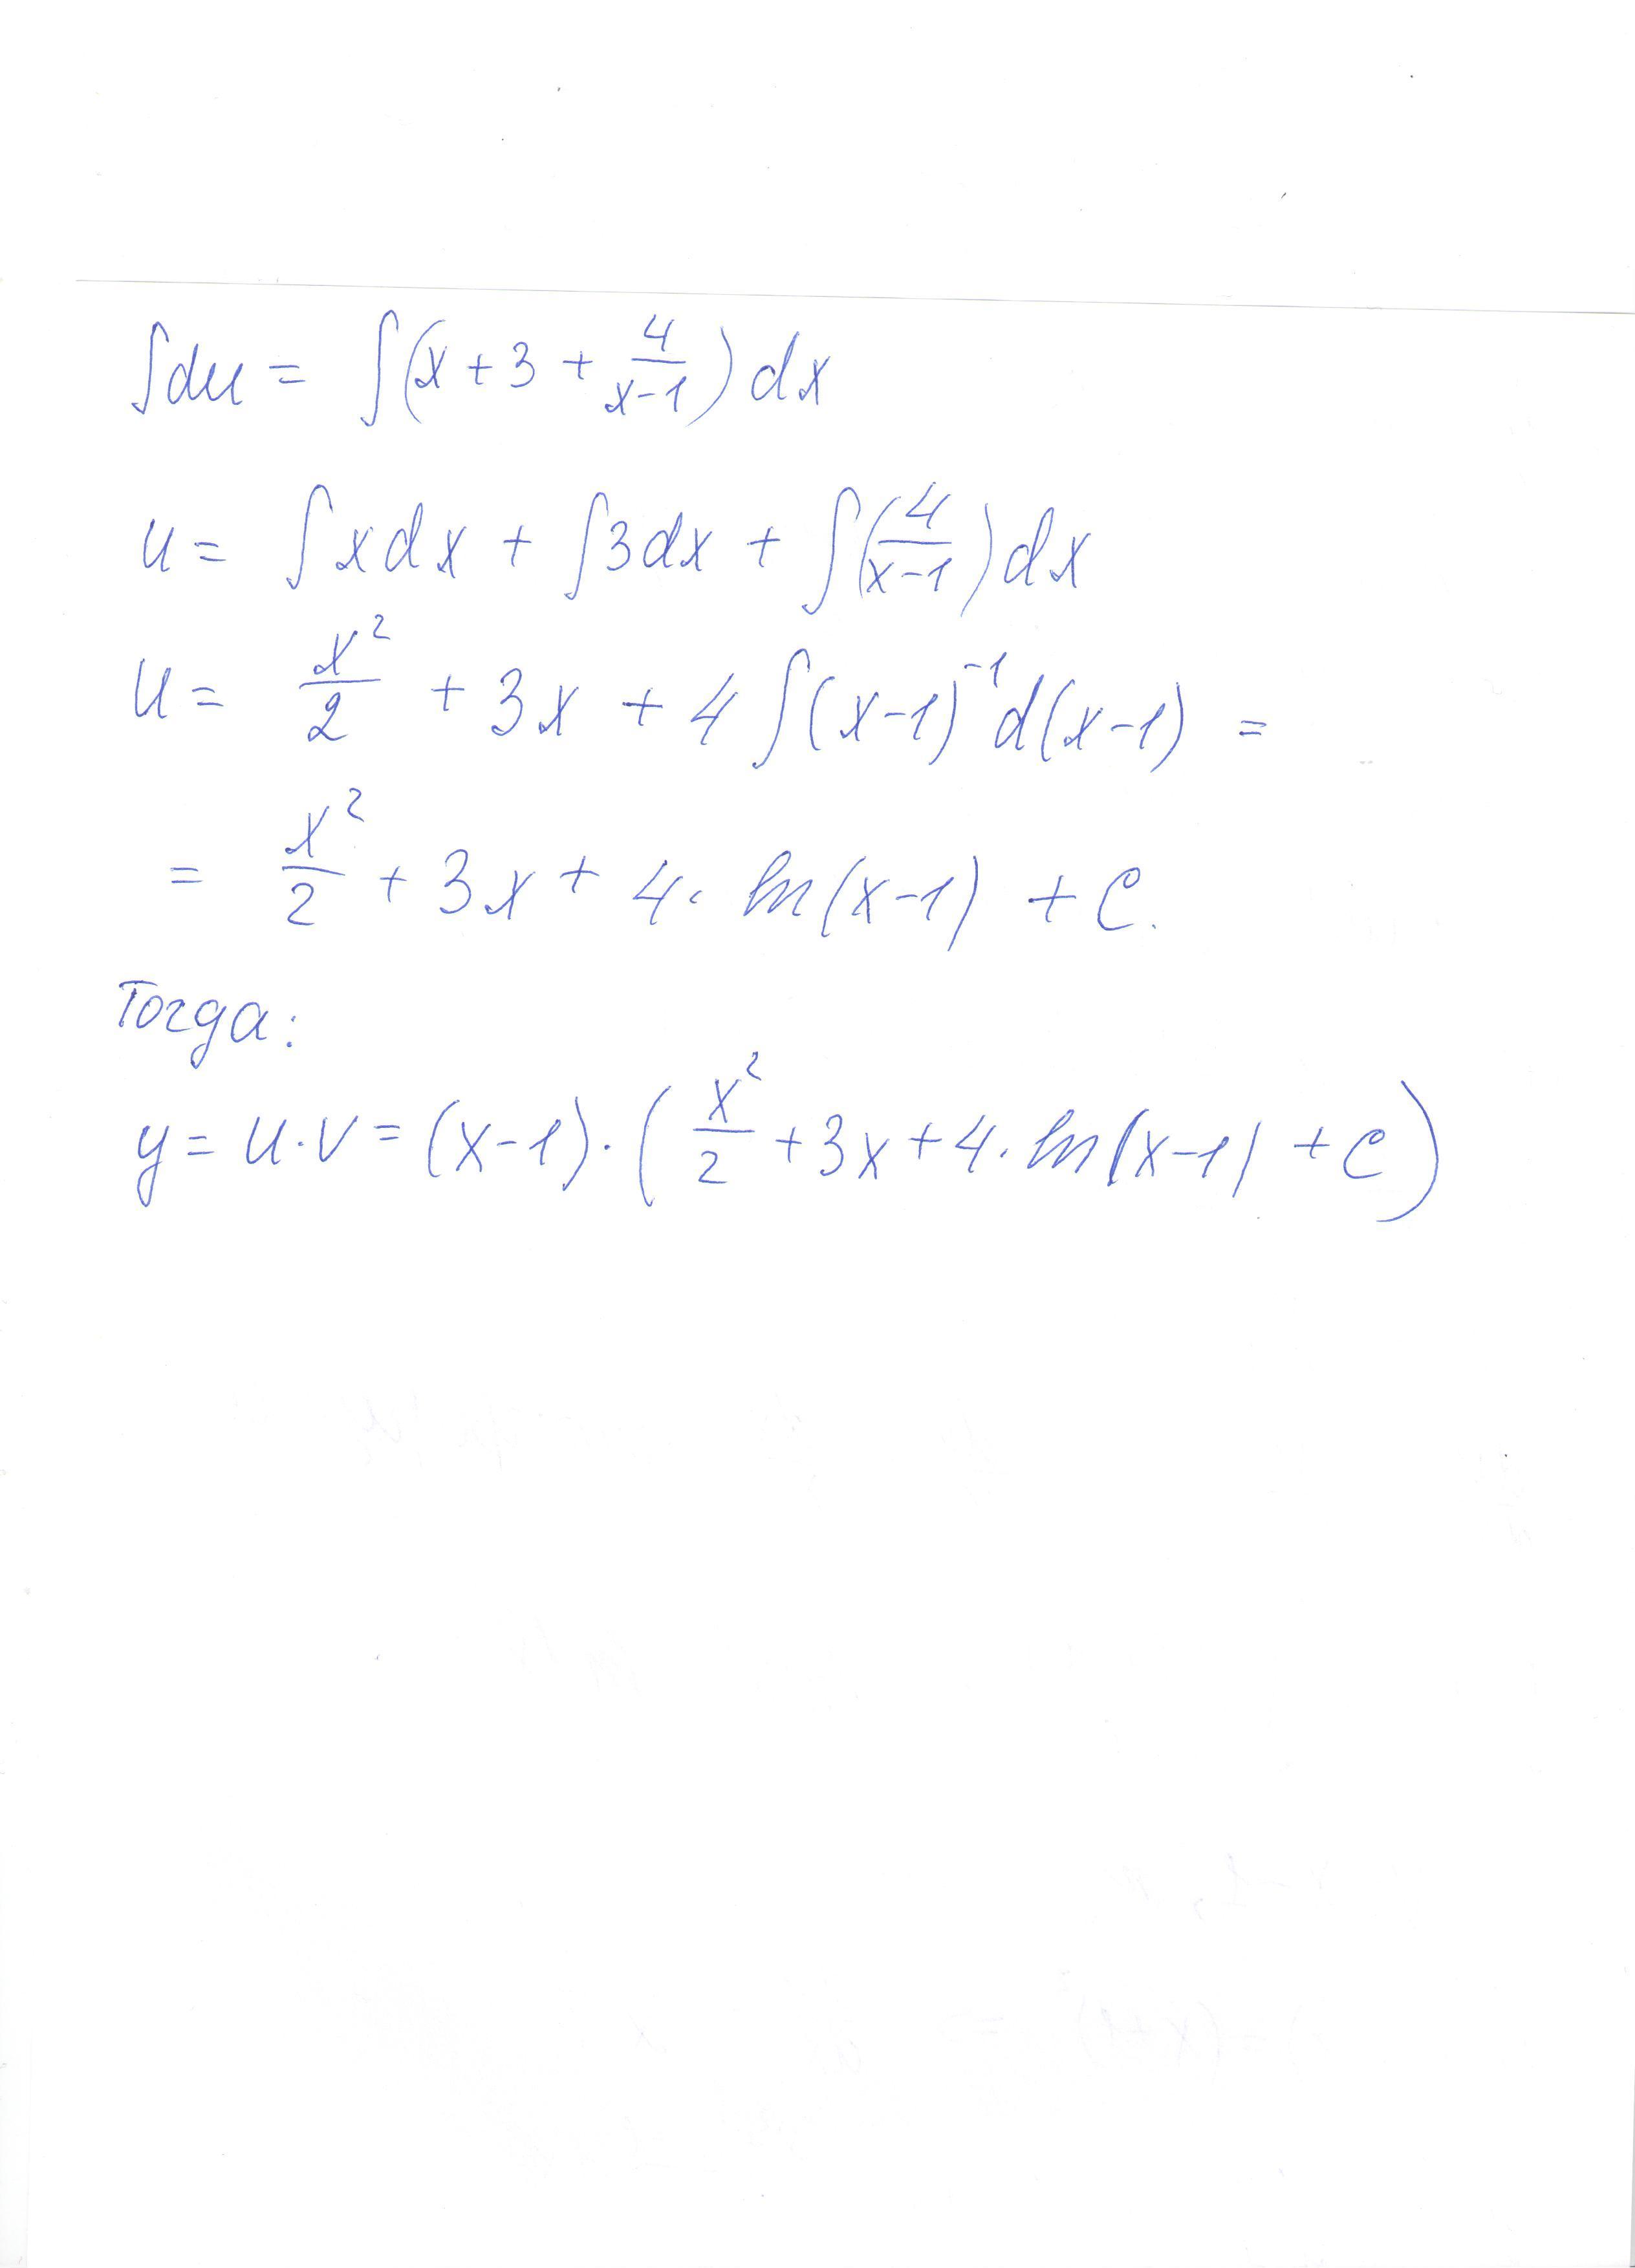 ∫du = ∫(x + 3 + 4/(x-1)) dx
u = ∫xdx + ∫3dx + ∫(4/(x-1)) dx
u = x²/2 + 3x + 4∫(x-1)⁻¹d(x-1) =
= x²/2 + 3x + 4· ln(x-1) + C.
Тогда:
y = u·v = (x-1)·(x²/2 + 3x + 4·ln(x-1) + C)